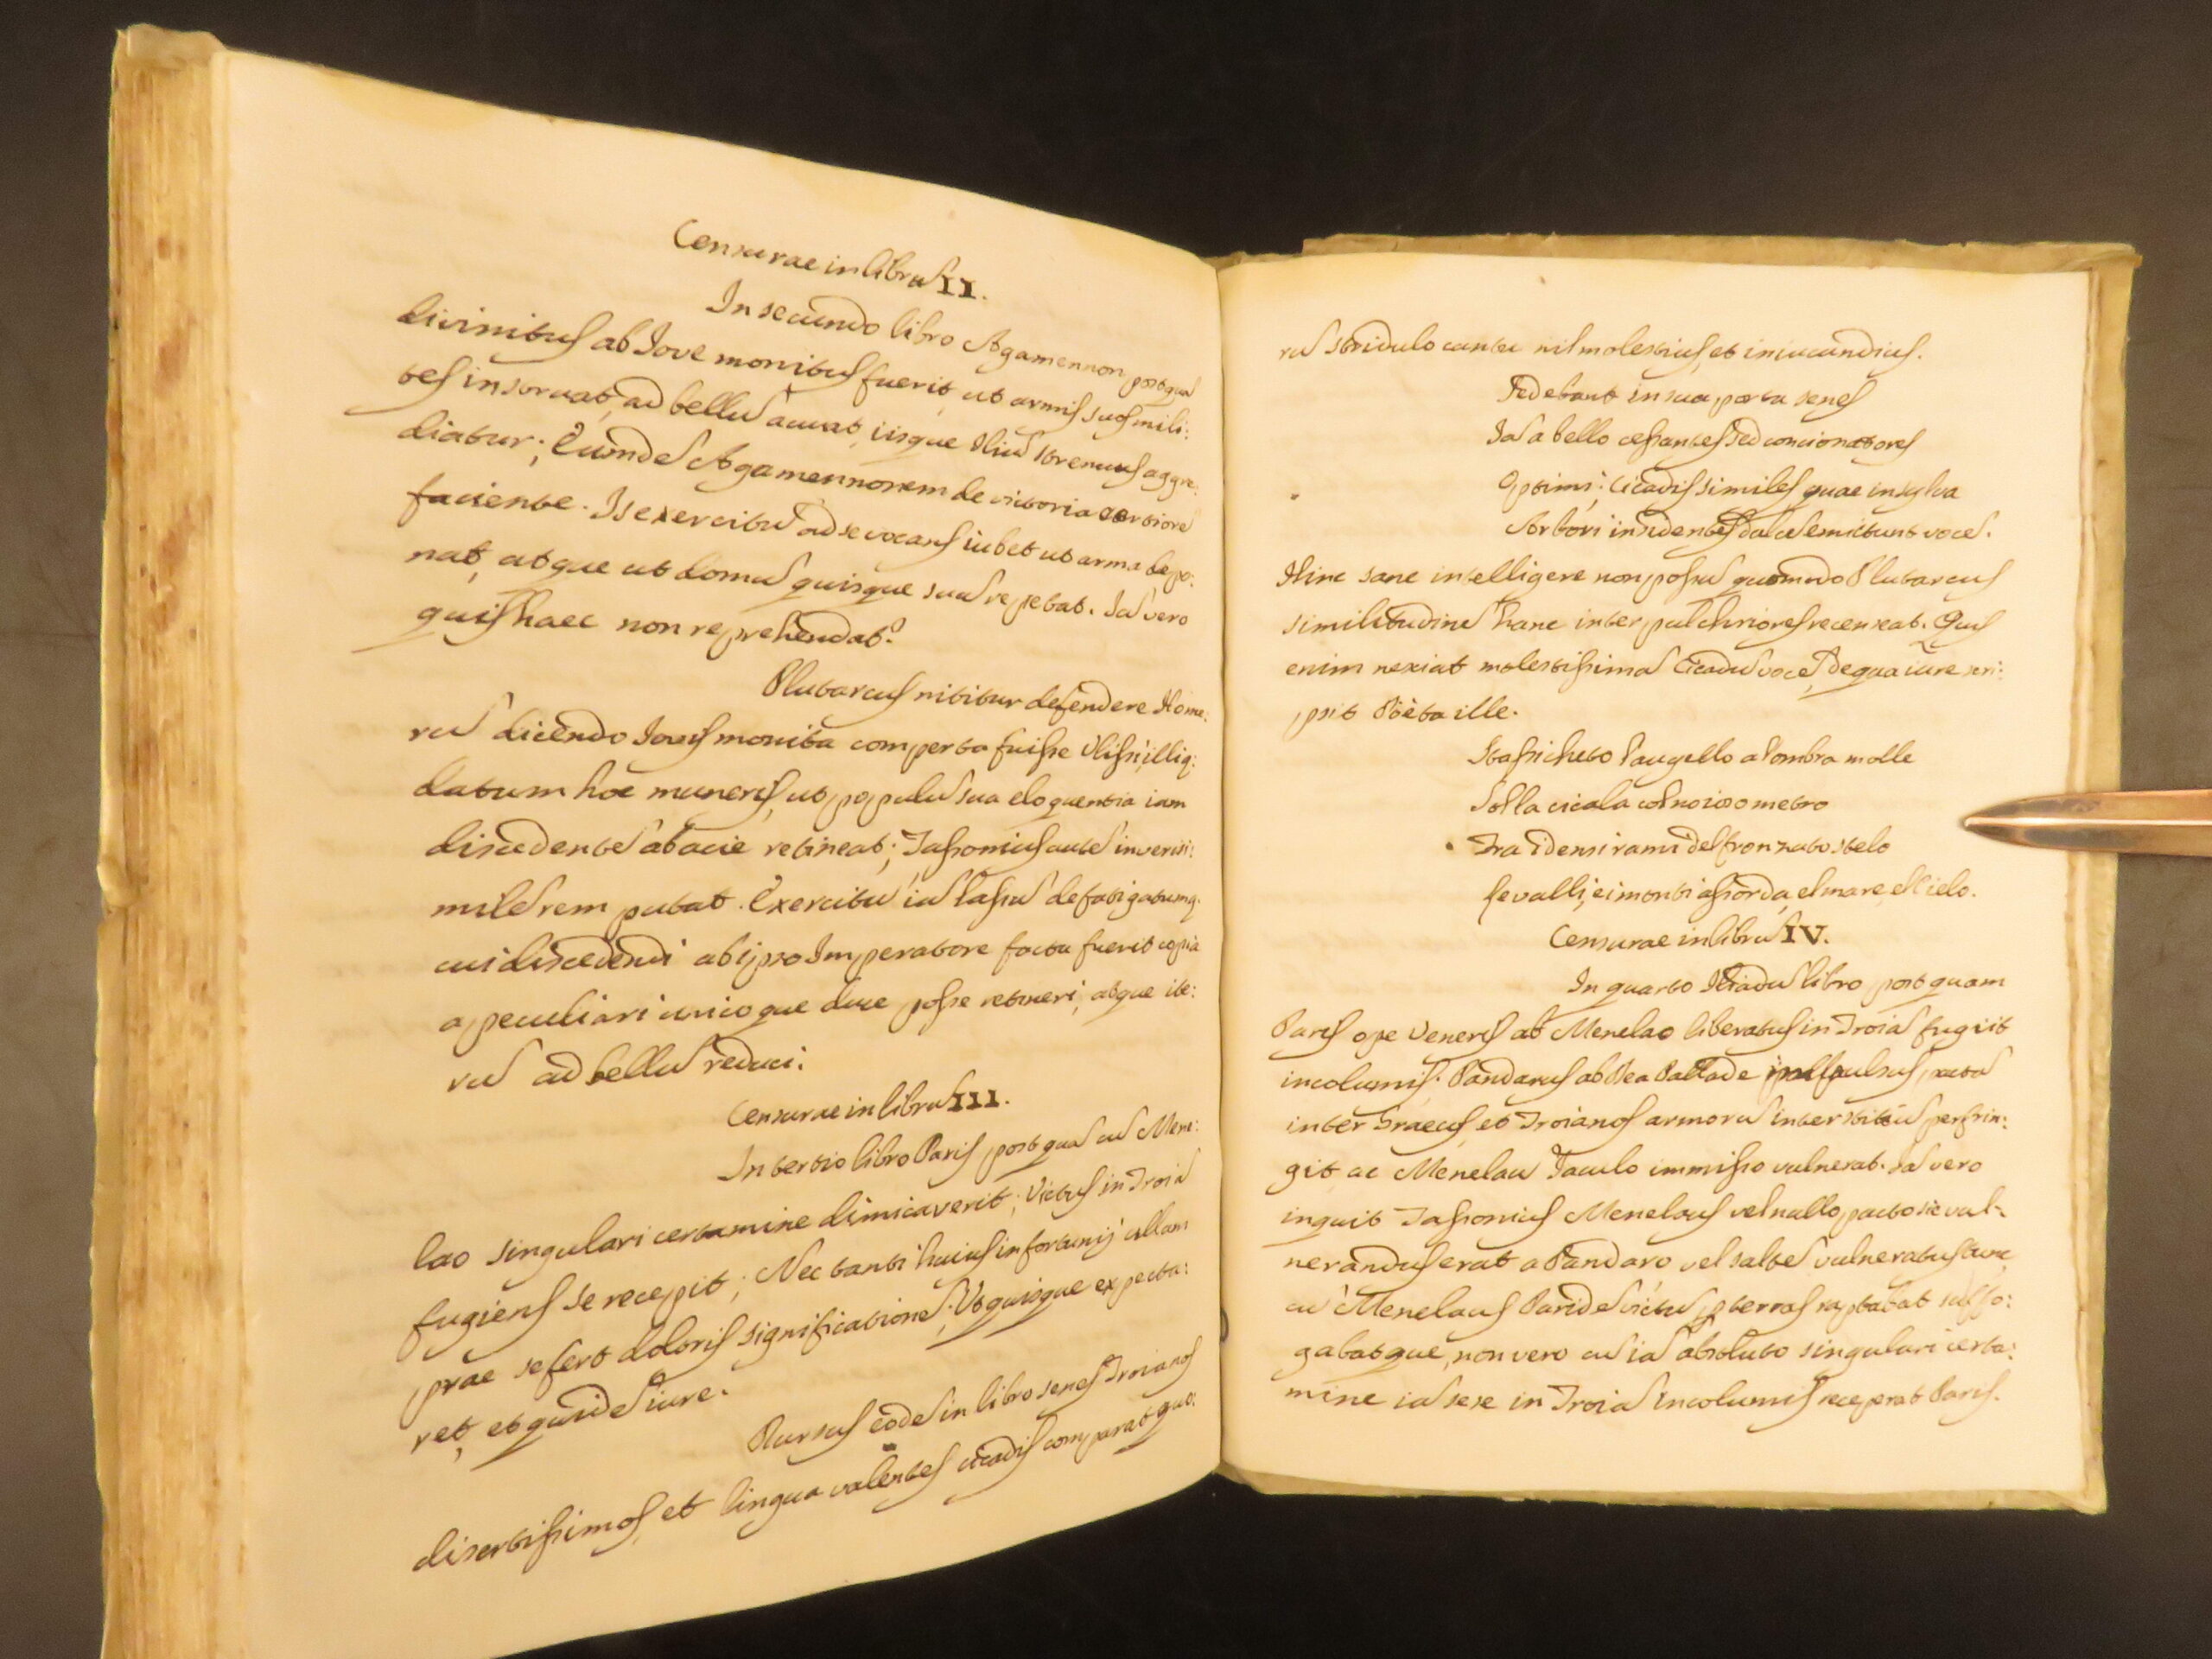 Censurae in librũ II.
In secundo libro Agamennon postquã
divinitus ab Iove monitus fuerit, ut armis suos mili:
tes instruat, ad bellũ acuat, iisque Iliũ strenuus aggre:
diatur; Eumdẽ Agamennonem de victoria certiorẽ
faciente. Is exercitũ ad se vocans iubet ut arma depo:
nat, atque ut domũ quisque suã repetat. Iã vero
quis haec non reprehendat?
Plutarcus nititur defendere Home:
rũ dicendo Iovis monita comperta fuisse Ulissi, illiq:
datum hoc muneris, ut populũ sua eloquentia iam
discedentẽ ab acie retineat; Tassonius autẽ inverisi:
milẽ rem putat. Exercitũ iã lassũ defatigatumq.
cui discedendi ab ipso Imperatore facta fuerit copia
a peculiari unicoque duce posse retineri, atque ite:
rũ ad bellũ reduci.
Censurae in librũ III.
In tertio libro Paris, postquã cũ Mene:
lao singulari certamine dimicaverit; Victus in Troiã
fugiens se recepit; Nec tanti huius infortunij ullam
prae se fert doloris significationẽ; Ut quisque expecta:
ret, et quidẽ iure.
Rursus eodẽ in libro senes Troianos
disertissimos, et lingua valentes cicadis comparat quo:
rũ stridulo cantu nil molestius, et iniucundius.
Sedebant in sua porta senes
Iã a bello cessantes sed concionatores
Optimi; Cicadis similes quae in sylva
Arbori insidentes dulcẽ emittunt vocẽ.
Hinc sane intelligere non possũ quomodo Plutarcus
similitudinẽ hanc inter pulchriores recenseat. Quis
enim nesciat molestissimã Cicadũ vocẽ, de qua iure scri:
psit Pöeta ille.
Stassi cheto l'augello a l'ombra molle
Sol la cicala col noioso metro
Fra i densi rami del fronzuto stelo
Le valli, e i monti assorda, e'l mare, e'l Cielo.
Censurae in librũ IV.
In quarto Iliadũ libro, postquam
Paris ope Veneris ab Menelao liberatus in Troiã fugiit
incolumis; Pandarus ab Dea Pallade pulsus, pactũ
inter Graecos, et Troianos armorũ interstitiũ perfrin:
git, ac Menelaũ Iaculo immisso vulnerat. Iã vero
inquit Tassonius Menelaus vel nullo pacto sic vul:
nerandus erat a Pandaro vel saltẽ vulneratus tunc
cũ Menelaus Paridẽ victũ, p terras raptabat suffo:
gabatque, non vero cũ iã absoluto singulari certa:
mine iã sese in Troiã incolumis receperat Paris.